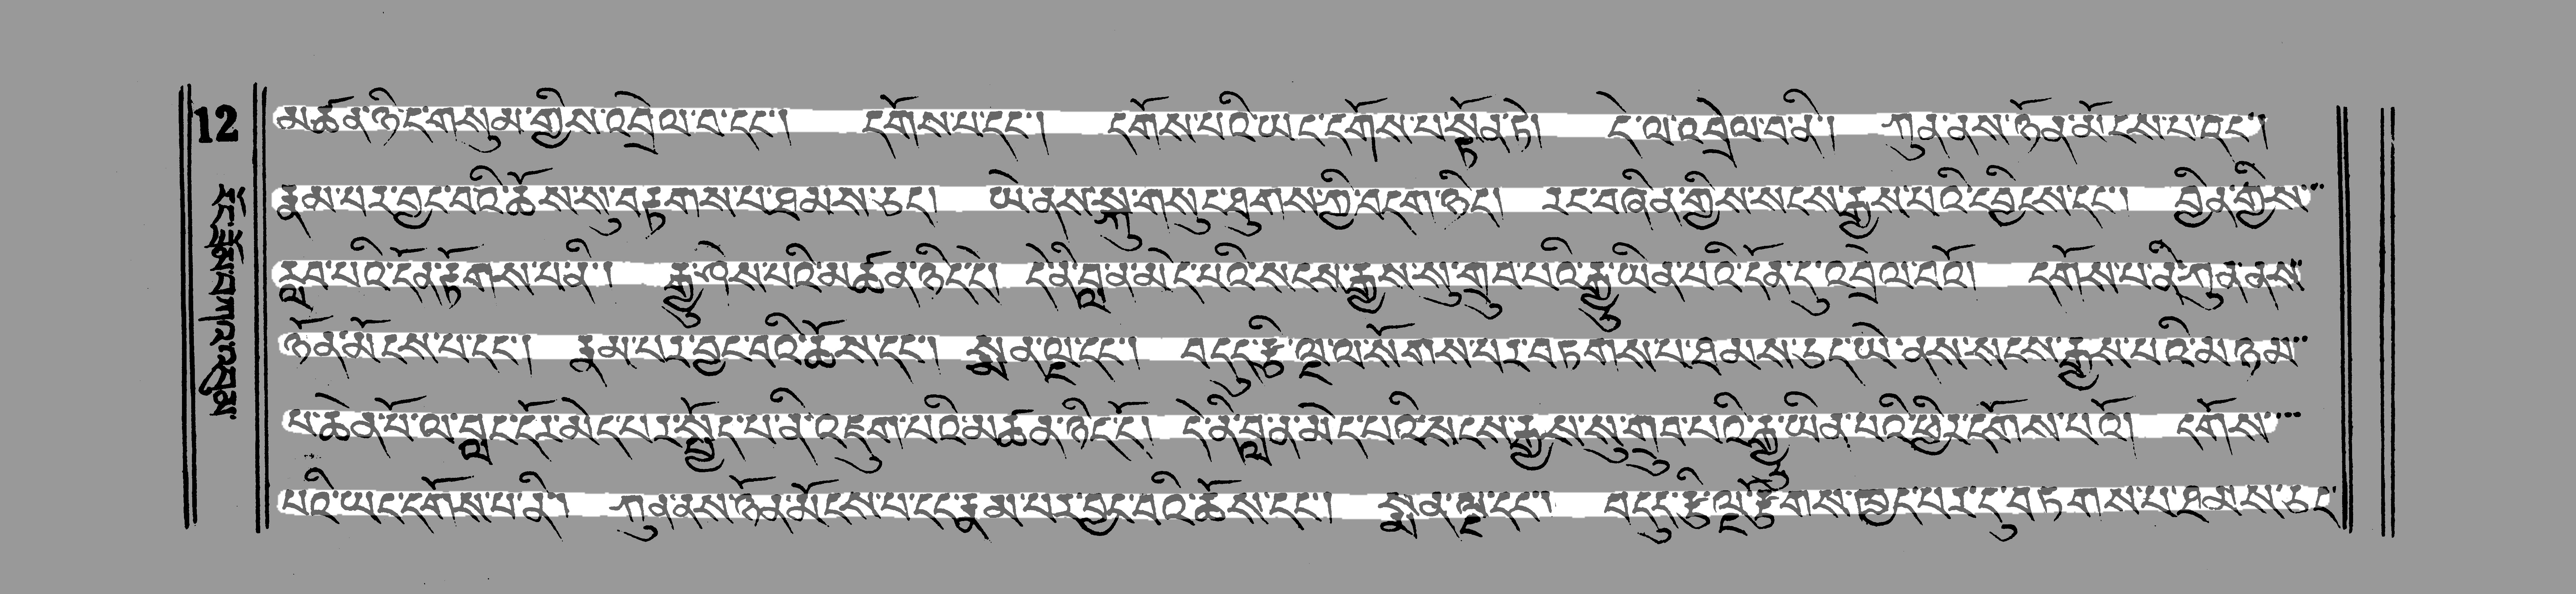 མཚན་ཉིད་གསུམ་གྱིས་འབྲེལ་བ་དང༌། དགོས་པ་དང༌། དགོས་པའི་ཡང་དགོས་པ་སྟོན་ཏེ། དེ་ལ་འབྲེལ་བ་ནི། ཀུན་ནས་ཉོན་མོངས་པ་དང༌།
རྣམ་པར་བྱང་བའི་ཆོས་སུ་བརྟགས་པ་ཐམས་ཅད། ཡེ་ནས་སྐུ་གསུང་ཐུགས་ཀྱི་བདག་ཉིད། རང་བཞིན་གྱིས་སངས་རྒྱས་པའི་དབྱིངས་དང༌། བྱིན་གྱིས་
རླབ་པའི་དོན་རྟོགས་པ་ནི། རྒྱུ་ཞེས་པའི་མཚན་ཉིད་དེ། དེ་ནི་བླ་ན་མེད་པའི་སངས་རྒྱས་སུ་གྲུབ་པའི་རྒྱུ་ཡིན་པའི་དོན་དུ་འབྲེལ་བའོ། དགོས་པ་ནི་ཀུན་ནས་
ཉོན་མོངས་པ་དང༌། རྣམ་པར་བྱང་བའི་ཆོས་དང༌། སྨན་ལྔ་དང༌། བདུད་རྩི་ལྔ་ལ་སོགས་པར་བཏགས་པ་ཐམས་ཅད་ཡེ་ནས་སངས་རྒྱས་པའི་མཉམ་
པ་ཆེན་པོ་ལ་བླང་དོར་མེད་པར་སྤྱོད་པ་ནི་འཇུག་པའི་མཚན་ཉིད་དོ། དེ་ནི་བླ་ན་མེད་པའི་སངས་རྒྱས་སུ་གྲུབ་པའི་རྒྱུ་ཡིན་པའི་ཕྱིར་དགོས་པའོ། དགོས་
པའི་ཡང་དགོས་པ་ནི། ཀུན་ནས་ཉོན་མོངས་པ་དང་རྣམ་པར་བྱང་བའི་ཆོས་དང༌། སྨན་ལྔ་དང༌། བདུད་རྩི་ལྔ་བྱང་པར་དུ་བཏགས་པ་ཐམས་ཅད་
12